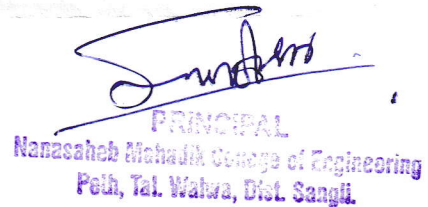 PRINCIPAL
Nanasaheb Mahadik College of Engineering
Peth, Tal. Walwa, Dist. Sangli.